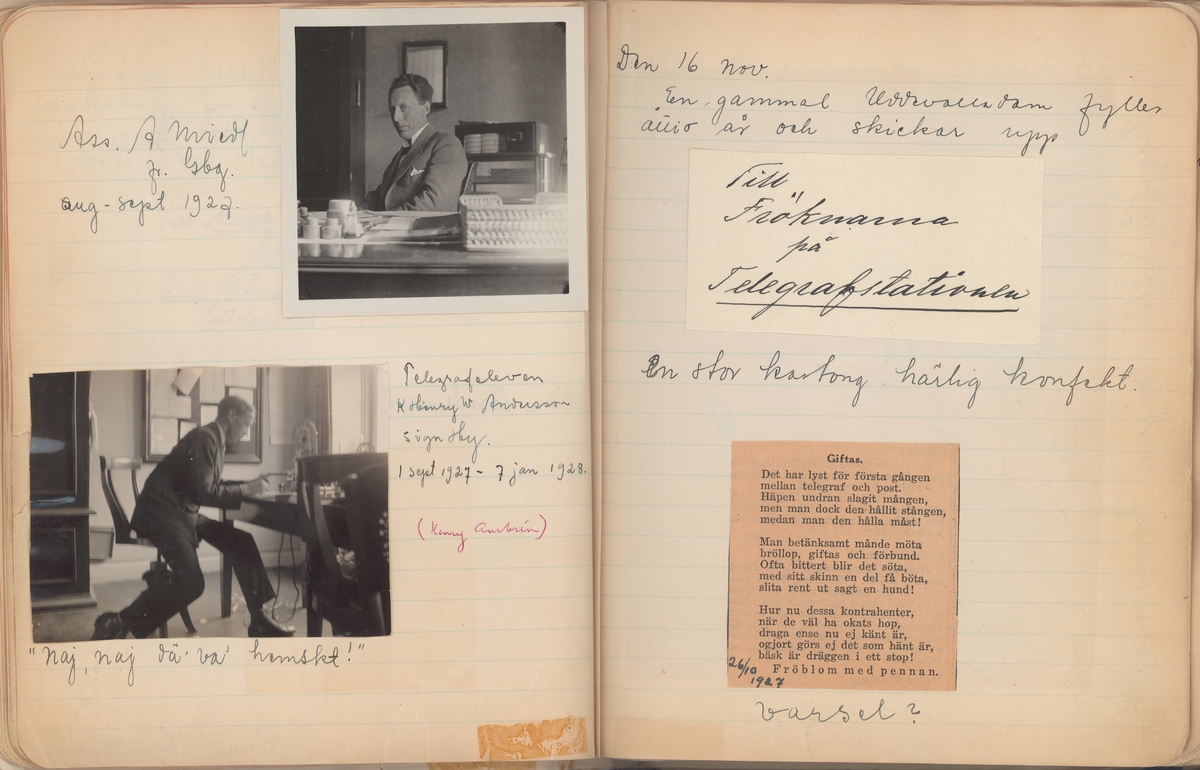 Ass. A
fr. Gbg.
aug - sept 1927.
Telegrafeleven
Henry W Andersson
sign
1 sept 1927 - 7 jan 1928.
(Henry Ambrin)
"Naj, naj dä va' hemskt!"
Den 16 nov.
En gammal Uddevalladam fyller
år och skickar upp
Till
Fröknarna
på
Telegrafstationen
En stor kartong härlig konfekt.
Giftas.
Det har lyst för första gången
mellan telegraf och post.
Häpen undran slagit mången,
men man dock den hållit stången,
medan man den hålla måst!
Man betänksamt månde möta
bröllop, giftas och förbund.
Ofta bittert blir det söta,
med sitt skinn en del få böta,
slita rent ut sagt en hund!
Hur nu dessa kontrahenter,
när de väl ha okats hop,
draga ense nu ej känt är,
ogjort görs ej det som hänt är,
bäsk är dräggen i ett stop!
Fröblom med pennan.
26/10
1927
varsel?